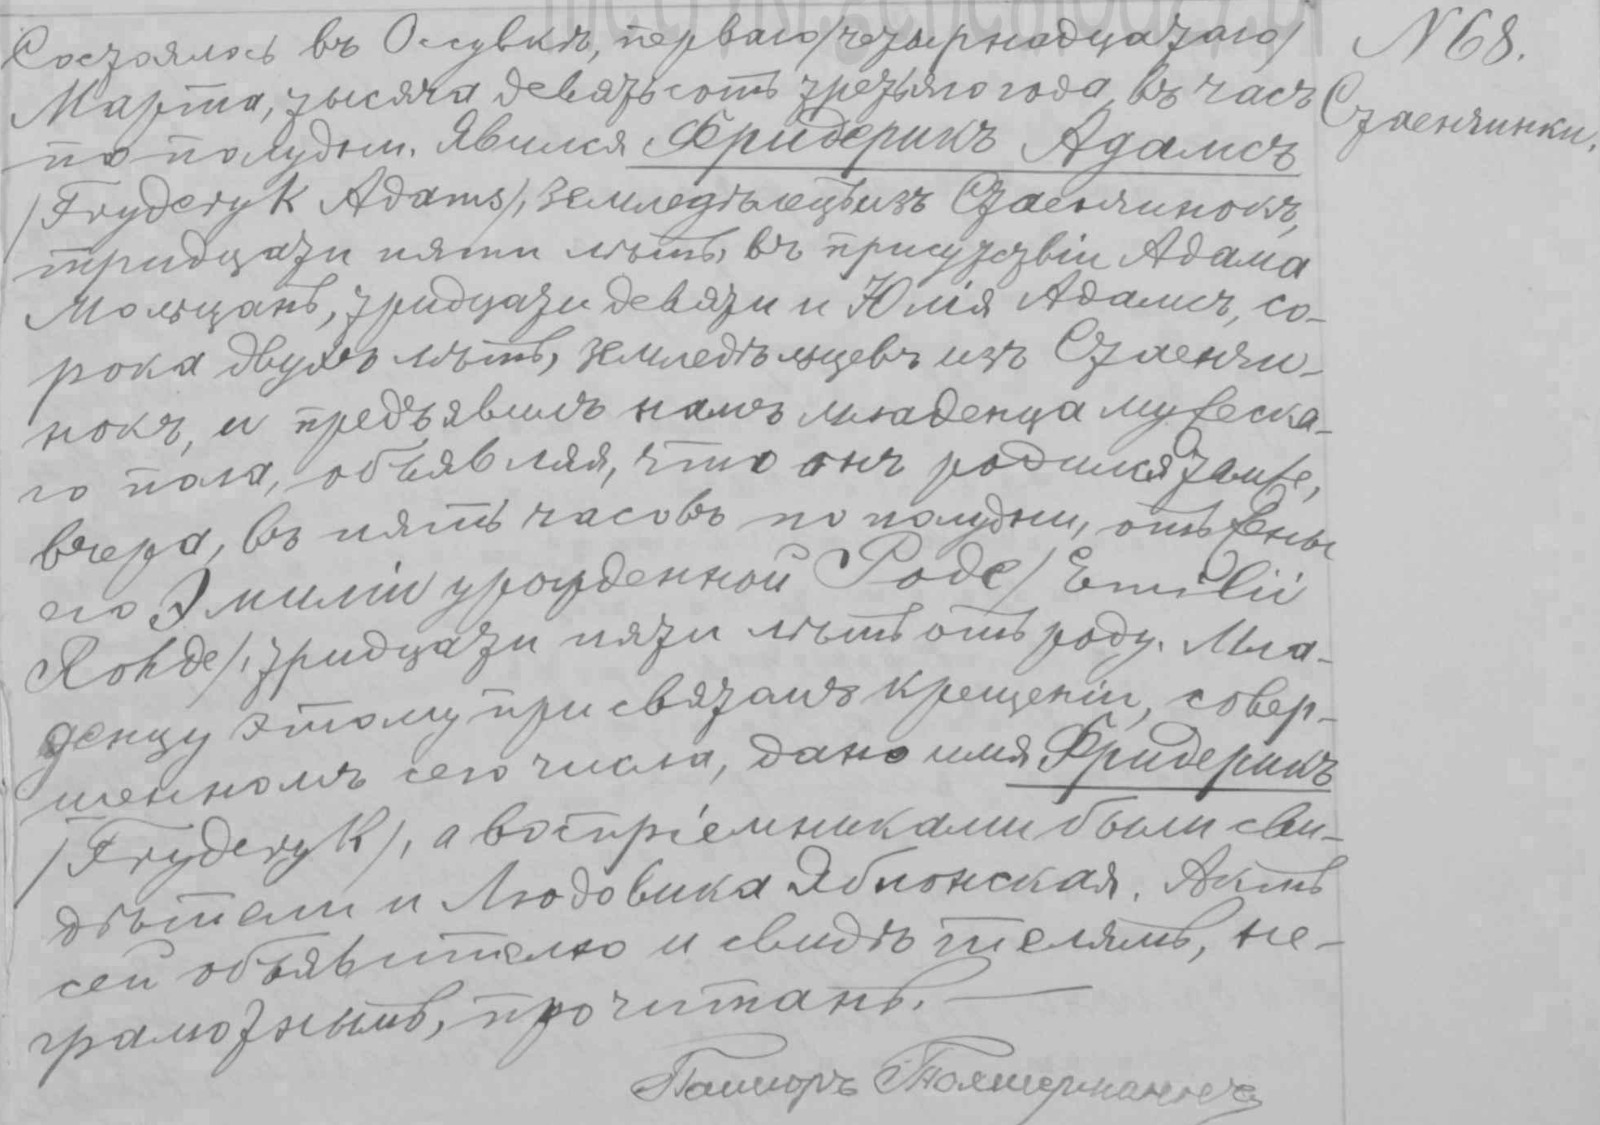 № 68.
Стаенчинки.
Состоялось въ Оссувкѣ, перваго /четырнадцатаго/
Марта, тысяча девятьсотъ третьяго года, въ часъ
по полудни. Явился Фридерикъ Адамсъ
/Fryderyk Adams/, земледѣлецъ изъ Стаенчинокъ,
тридцати пяти лѣтъ, въ присутствіи Адама
Мольцанъ, тридцати девяти и Юлія Адамсъ, со-
рока двухъ лѣтъ, земледѣльцевъ изъ Стаенчи-
нокъ, и предъявилъ намъ младенца мужеска-
го пола, объявляя, что онъ родился тамже,
вчера, въ пять часовъ по полудни, отъ жены
его Эмиліи урожденной Роде /Emilii
Rohde/, тридцати пяти лѣтъ отъ роду. Мла-
денцу этому при святомъ крещеніи, совер-
шенномъ сего числа, дано имя Фридерикъ
/Fryderyk/, а воспріемниками были сви-
дѣтели и Людовика Яблонская. Актъ
сей объявителю и свидѣтелямъ, не-
грамотнымъ, прочитанъ.
Пасторъ